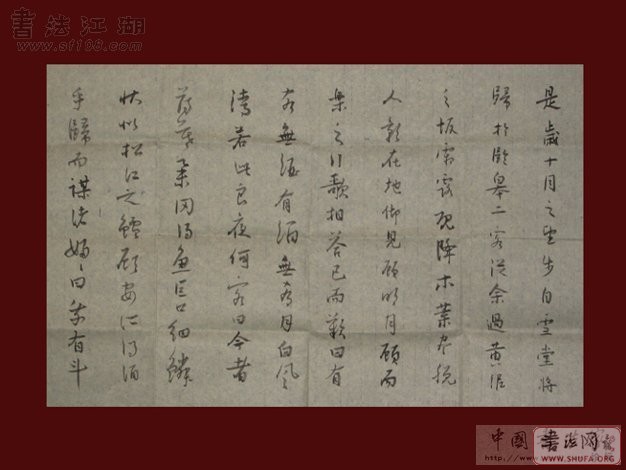 書法江湖
www.sf108.com
是歲十月之望步自雪堂將
歸於臨皋二客從余過黃泥
之坂霜露既降木葉盡脫
人影在地仰見顧明月顧而
樂之行歌相答已而歎曰有
客無酒有酒無肴月白風
清若此良夜何客曰今者
薄暮舉网得魚巨口細鱗
狀似松江之鱸顧安所得酒
乎歸而謀諸婦〻曰我有斗
中國書法网
http://www.SHUFA.ORG